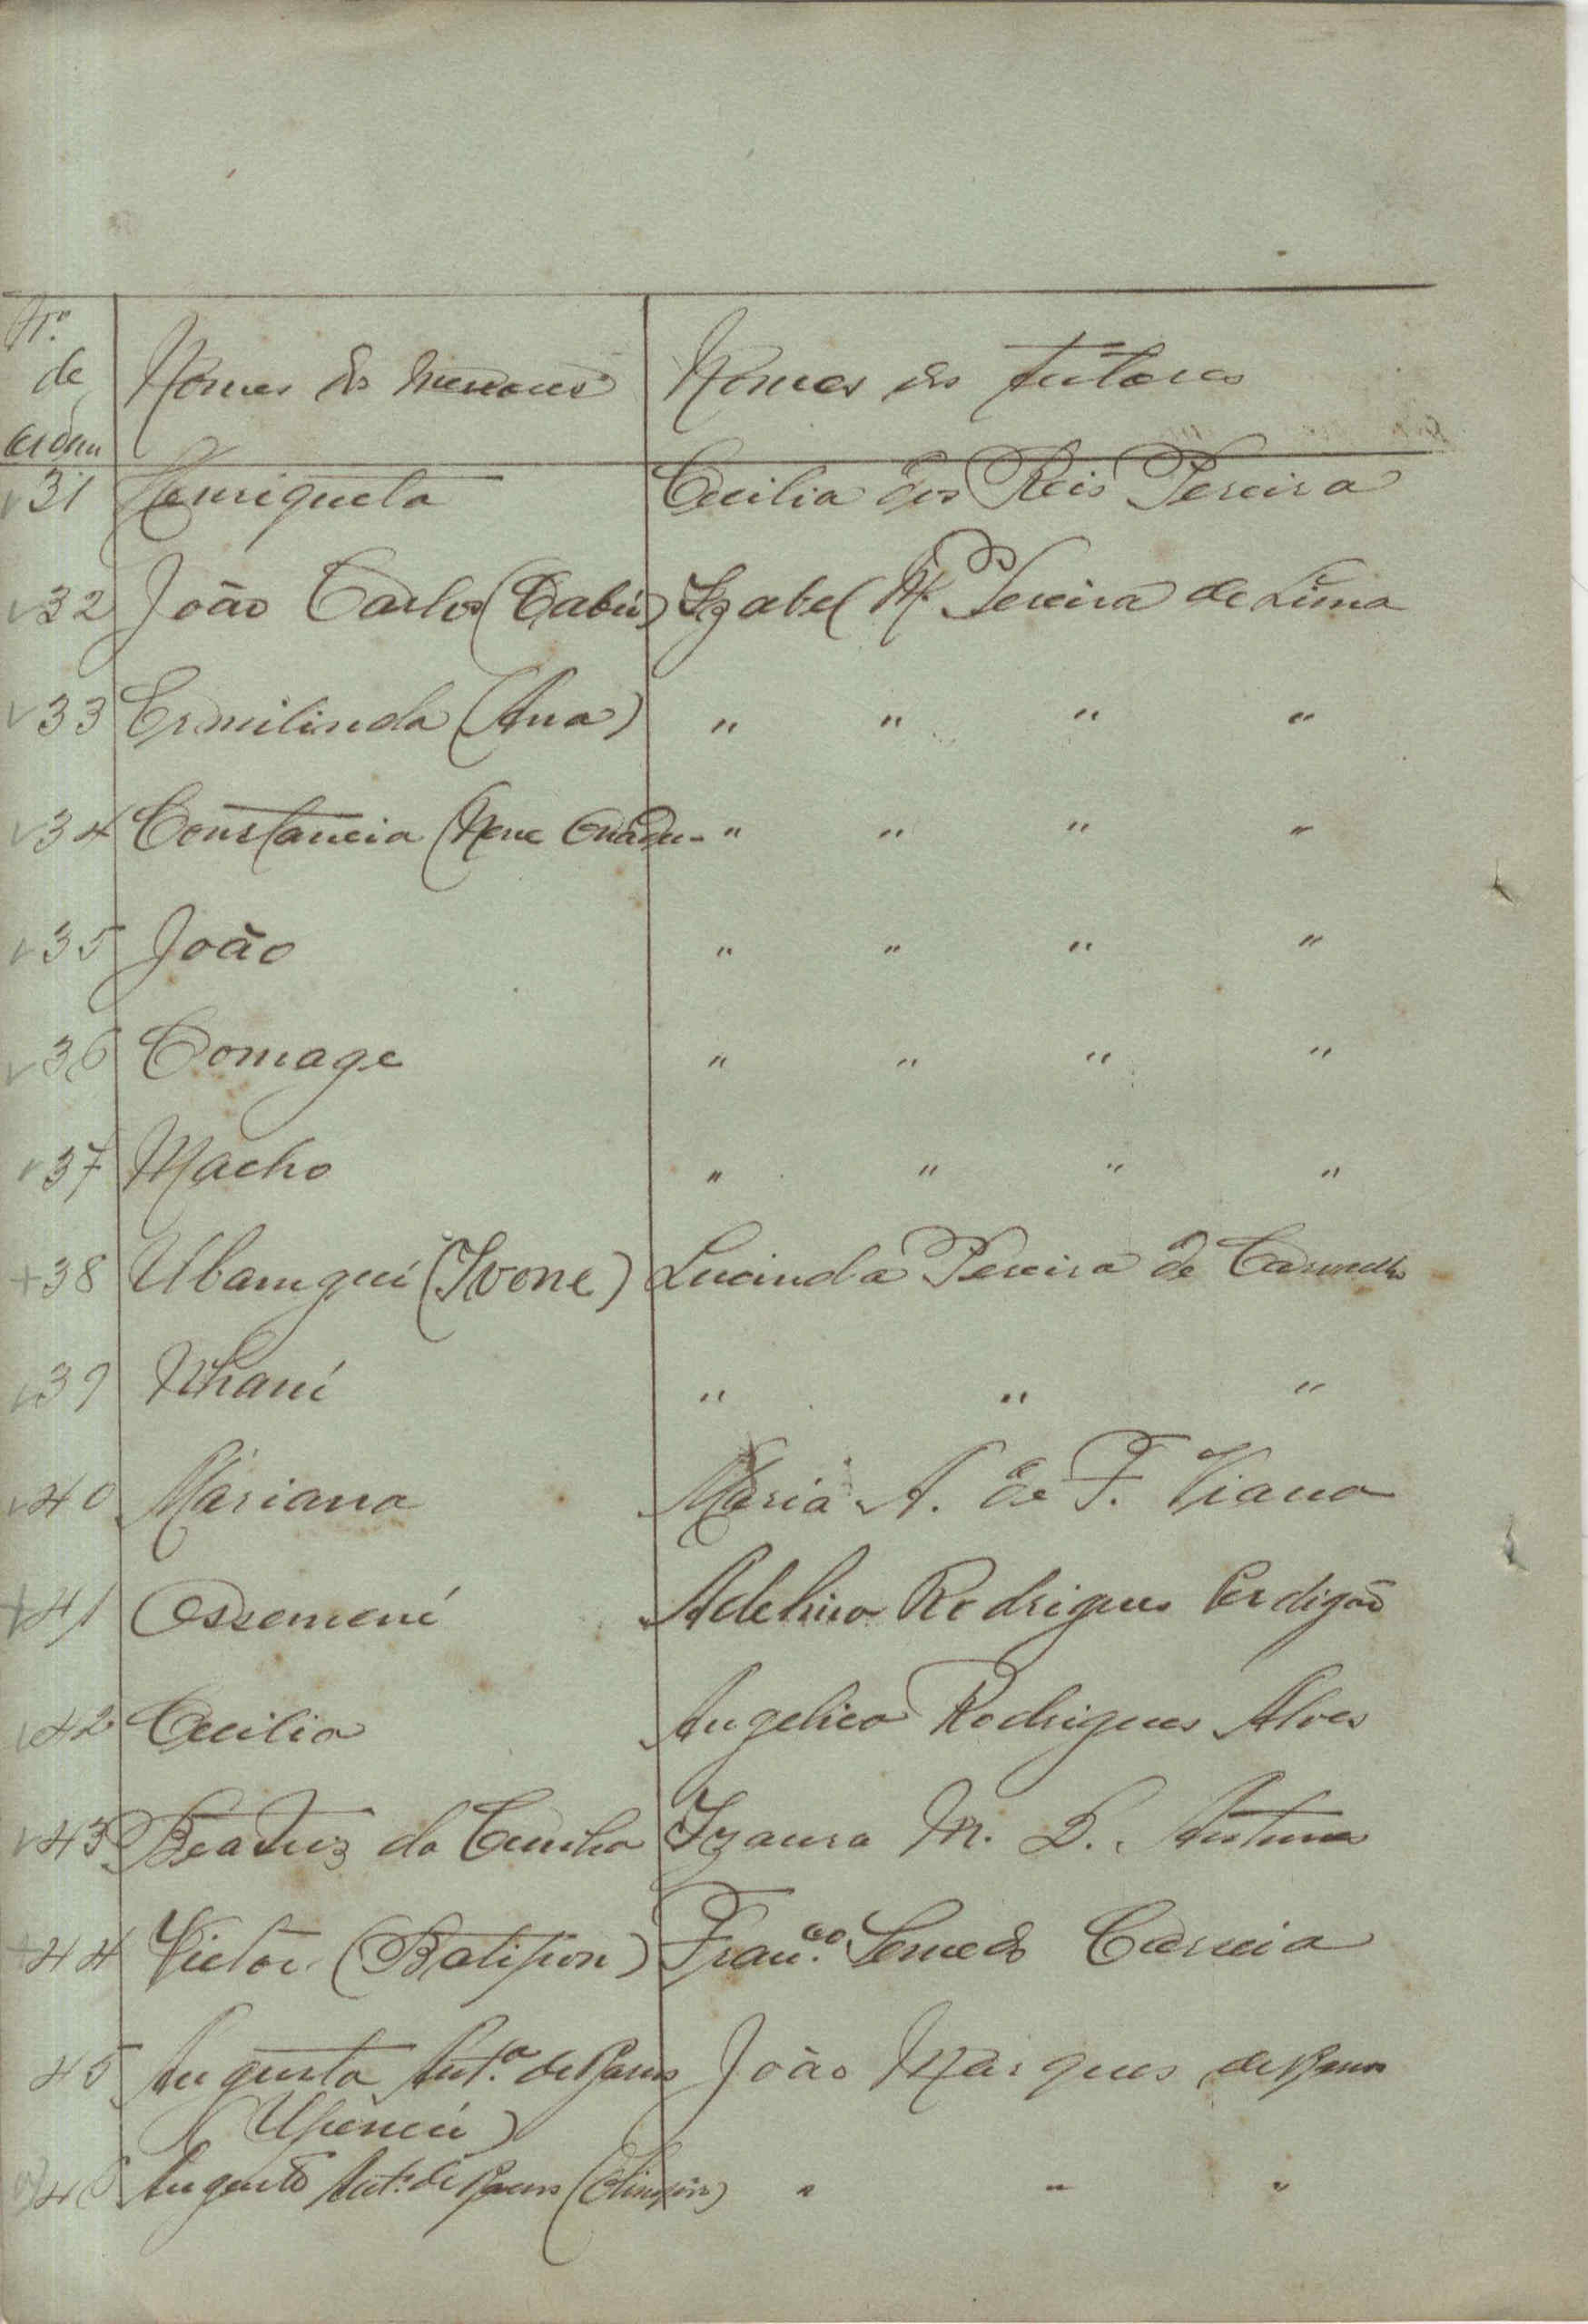 Nº
de
ordem
Nomes dos menores Nomes dos tutores
31 Henriqueta Cecilia dos Reis Pereira
32 João Carlos (Cabú) Izabel M. Pereira de Lima
33 Ermilinda (Ana) " " " "
34 Constancia (Nene " " " "
35 João " " " "
36 Comage " " " "
37 Macho " " " "
38 Ubamgui (Ivone) Lucinda Pereira de Carvalho
39 Nhaní " " "
40 Mariana Maria A. de F. Viana
41 Ossemení Adelino Rodrigues Perdigão
42 Cecilia Angelica Rodrigues Alves
43 Beatriz da Cunha Izaura M. L. Antunes
44 Victor (Batipon) Franᶜᵒ Semedo Correia
45 Augusta Antª de Barros João Marques de Barros
46 Augusto Antº de Barros " " "